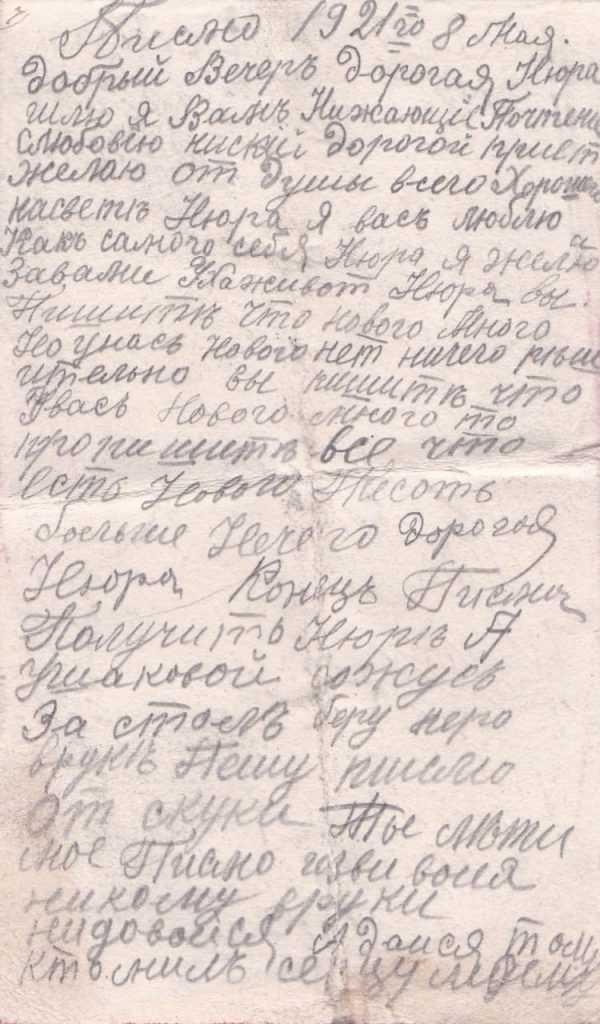 Писмо 1921го 8 Мая.
Добрый Вечеръ Дорогая Нюра
шлю я Вамъ Нижающіе Почтени
слюбовію ниский Дорогой привет
желаю от Душы всего Хорошего
насветѣ Нюра я васъ люблю
Какъ самого себя Нюра я желаю
Завами Нюра вы
Пишитѣ что нового много
Но унасъ нового нет ничего рѣш
ительно вы пишитѣ что
Увасъ Нового много то
пропишитѣ все что
есть Нового Песать
больше Нечего Дорогая
Нюра Конецъ Писма
Получить Нюрѣ А
Ушаковой сожусь
За столъ беру перо
врукѣ Пешу писмо
От скуки лѣти
мое Писмо изви воися
никому вруки
нидовойся А дайся тому
кто милъ сердцу моему